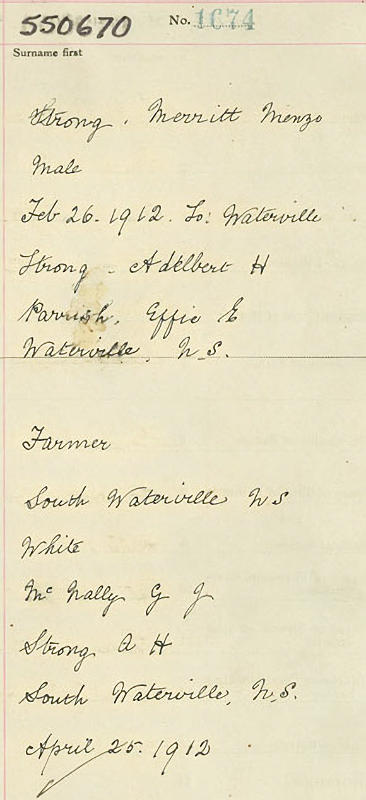 550670 No. 1674
Surname first
Strong, Merritt Menzo
Male
Feb 26. 1912. So: Waterville
Strong - Adelbert H
Parrish, Effie E
Waterville, N.S.
Farmer
South Waterville N S
White
Mc Nally G J
Strong A H
South Waterville, N.S.
April 25. 1912